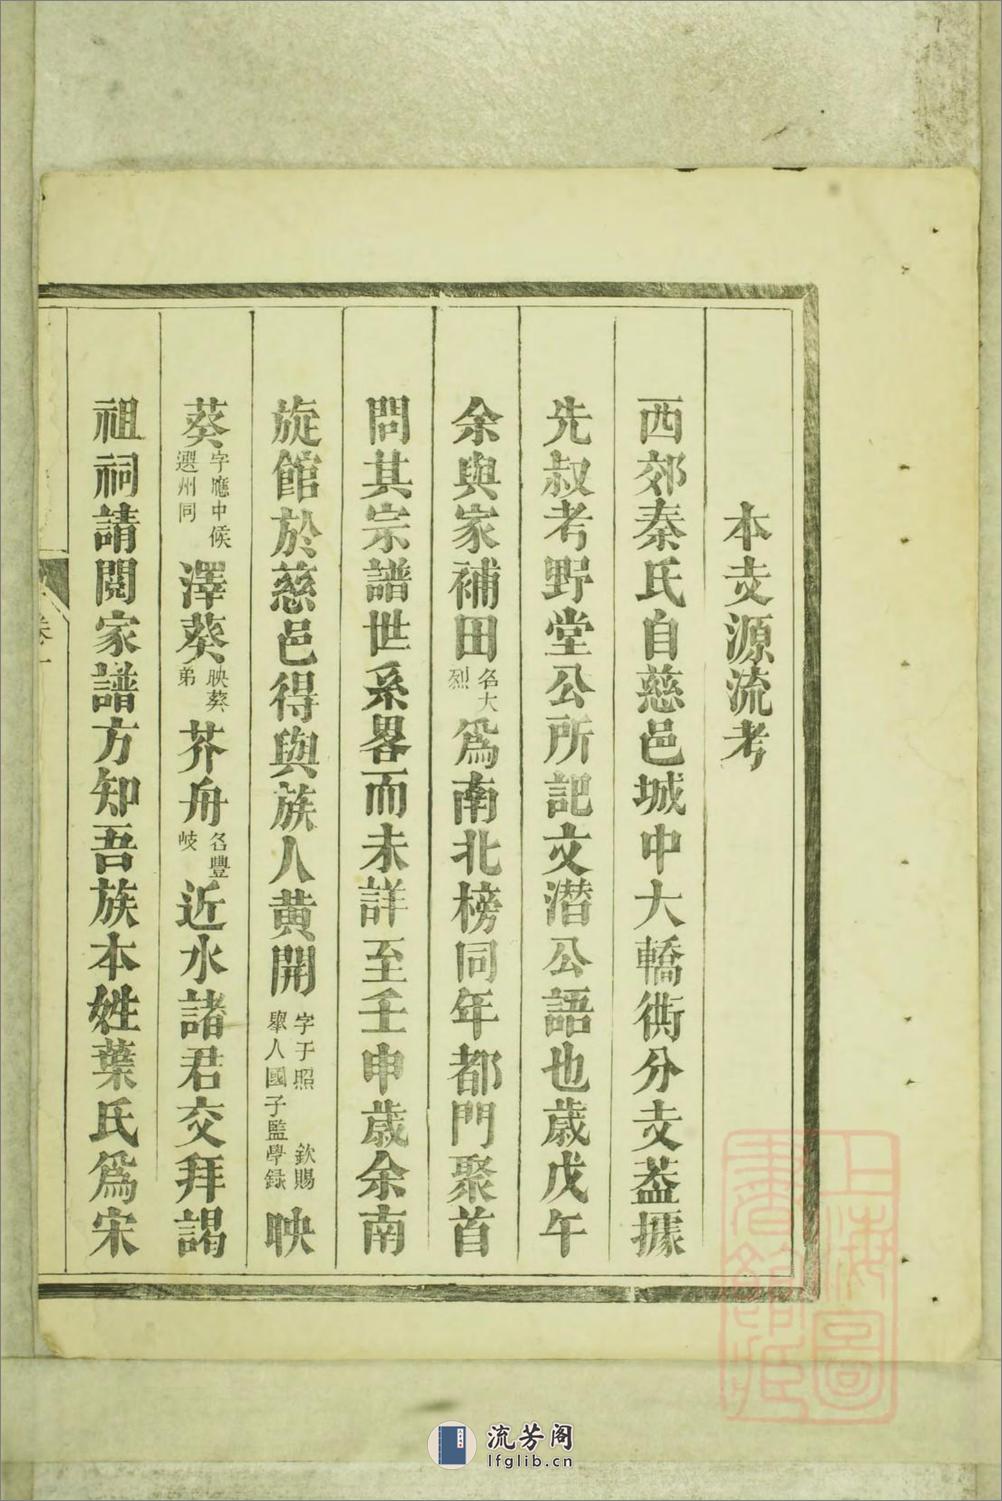 本支源流考
西郊秦氏自慈邑城中大轎衖分支葢據
先叔考野堂公所記文潜公語也歲戊午
余與家補田名大烈爲南北榜同年都門聚首
問其宗譜世系畧而未詳至壬申歲余南
旋館於慈邑得與族人黄開字于照 欽賜舉人國子監學録映
葵字應中候選州同澤葵映葵弟芥舟名豐岐近水諸君交拜謁
祖祠請閲家譜方知吾族本姓葉氏爲宋
卷一
上海圖書館藏
流芳阁
lfglib.cn